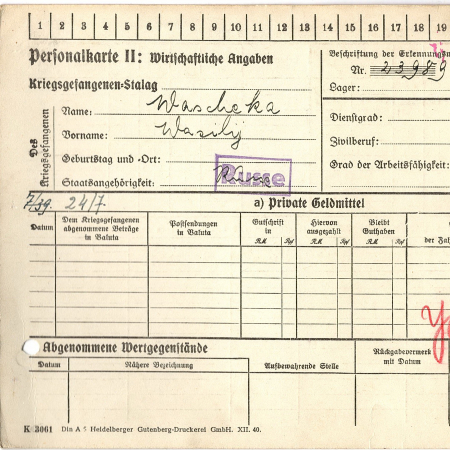 1 2 3 4 5 6 7 8 9 10 11 12 13 14 15 16 17 18 19
Personalkarte II: Wirtschaftliche Angaben
Kriegsgefangenen-Stalag
Des Kriegsgefangenen
Name: Wascheka
Vorname: Wasilij
Geburtstag und -Ort:
Staatsangehörigkeit: Russe
Beschriftung der Erkennungsm
Nr. 23989
Lager:
Dienstgrad:
Zivilberuf:
Grad der Arbeitsfähigkeit:
24/7
a) Private Geldmittel
Datum
Dem Kriegsgefangenen abgenommene Beträge in Valuta
Postsendungen in Valuta
Gutschrift in
RM Rpf
Hiervon ausgezahlt
RM Rpf
Bleibt Guthaben
RM Rpf
der Zah
Abgenommene Wertgegenstände
Datum
Nähere Bezeichnung
Aufbewahrende Stelle
Rückgabevermerk mit Datum
K 3061 Din A 5 Heidelberger Gutenberg-Druckerei GmbH. XII. 40.